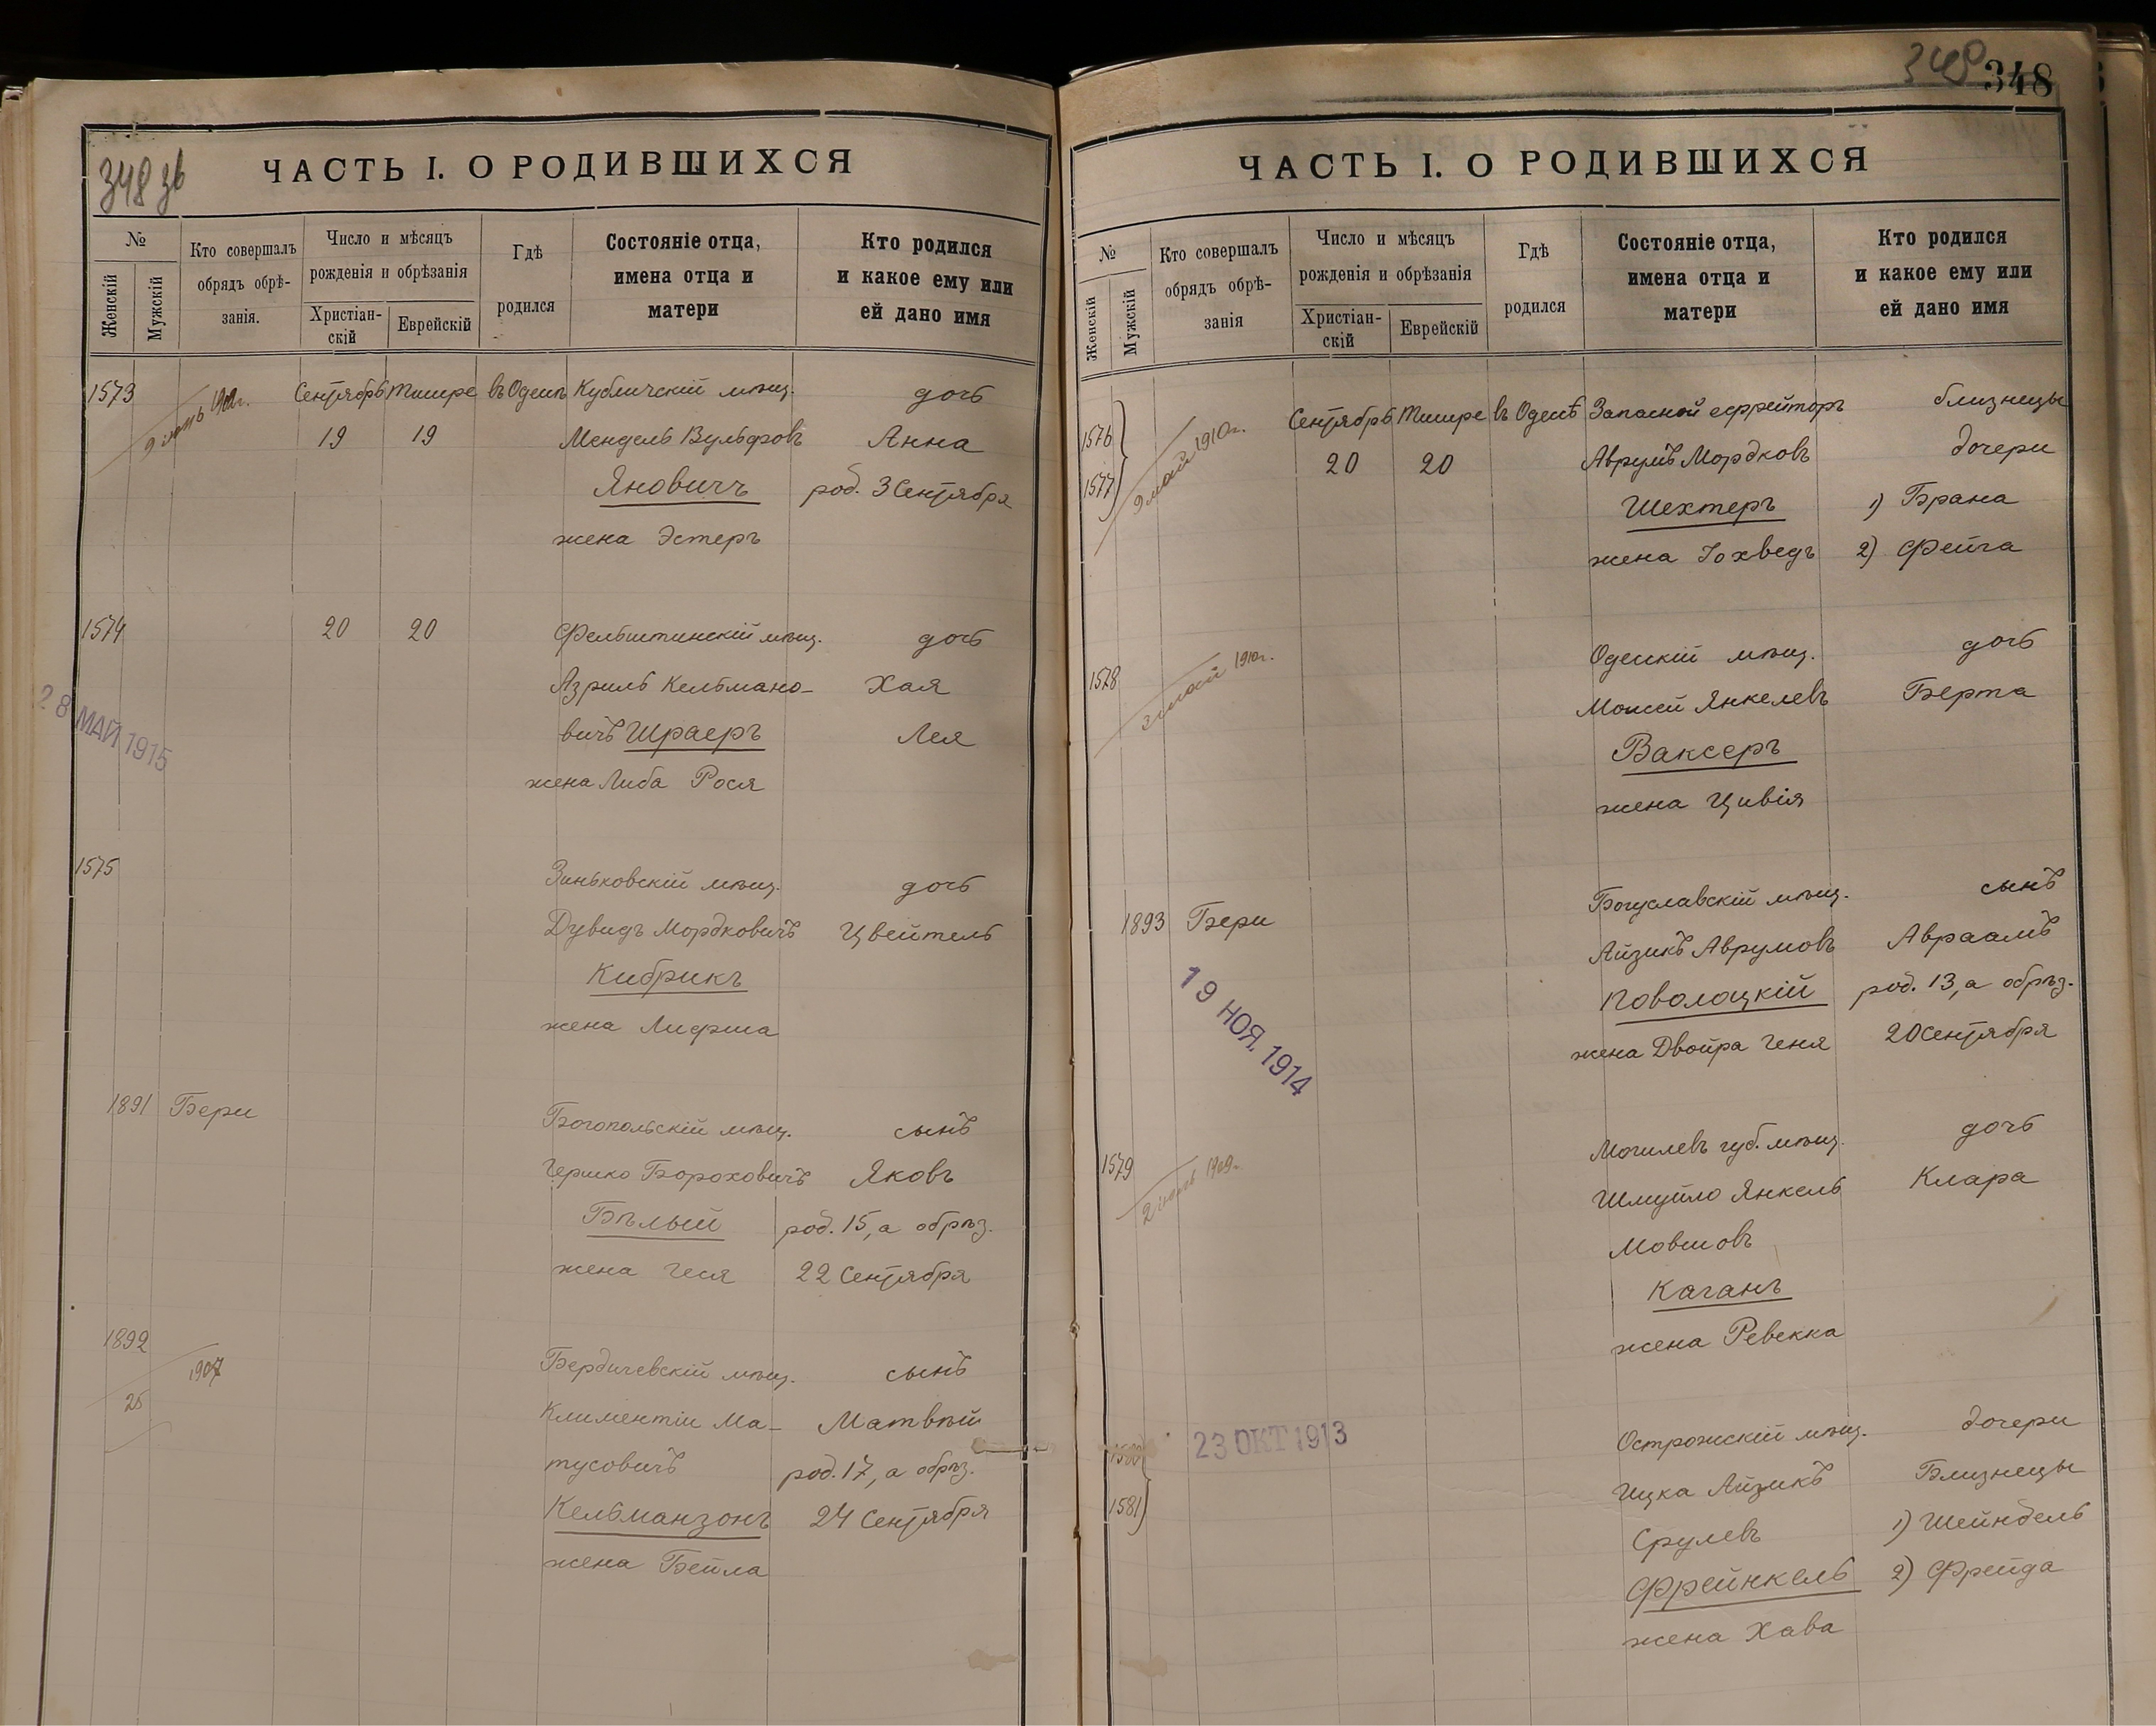 348 зв
ЧАСТЬ I. О РОДИВШИХСЯ
№
Женскій
Мужскій
Кто совершалъ
обрядъ обрѣ-
занія.
Число и мѣсяцъ
рожденія и обрѣзанія
Христіан-
скій
Еврейскій
Гдѣ
родился
Состояніе отца,
имена отца и
матери
Кто родился
и какое ему или
ей дано имя
1573 Сентябрь Тишре въ Одессѣ Кубличскій мѣщ. дочь
19 19 Мендель Вульфовъ Анна
Яновичъ род. 3 Сентября
жена Эстеръ
1574 20 20 Фельштинскій мѣщ. дочь
Азриль Кельмано- Хая
28 МАЙ 1915
вичъ Шраеръ Лея
жена Либа Рося
1575 Зиньковскій мѣщ. дочь
Дувидъ Мордковичъ Цвейтель
Кибрикъ
жена Лифша
1891 Бери Богопольскій мѣщ. сынъ
Гершко Бороховичъ Яковъ
Бѣлый род. 15, а обрѣз.
жена Геся 22 Сентября
1892 Бердичевскій мѣщ. сынъ
1907
25
Климентій Ма- Матвѣй
тусовичъ род. 17, а обрѣз.
Кельманзонъ 24 Сентября
жена Бейла
348
348
ЧАСТЬ I. О РОДИВШИХСЯ
№
Женскій
Мужскій
Кто совершалъ
обрядъ обрѣ-
занія
Число и мѣсяцъ
рожденія и обрѣзанія
Христіан-
скій
Еврейскій
Гдѣ
родился
Состояніе отца,
имена отца и
матери
Кто родился
и какое ему или
ей дано имя
9 май 1910г.
1576 Сентябрь Тишре въ Одессѣ Запасной ефрейторъ близнецы
1577 20 20 Аврумъ Мордковъ дочери
Шехтеръ 1) Брана
жена Іохведъ 2) Фейга
1578 3 май 1910г. Одесскій мѣщ. дочь
Мошей Янкелевъ Берта
Ваксеръ
жена Цивія
1893 Бери Богуславскій мѣщ. сынъ
Айзикъ Аврумовъ Авраамъ
19 НОЯ. 1914
Поволоцкій род. 13, а обрѣз.
жена Двойра Геня 20 Сентября
1579 Могилевъ губ. мѣщ. дочь
Шмуйло Янкель Клара
Мовшовъ
Каганъ
жена Ревекка
1580 23 ОКТ 1913 Острожскій мѣщ. дочери
1581 Ицка Айзикъ Близнецы
Срулевъ 1) Шейндель
Фрейнкель 2) Фрейда
жена Хава